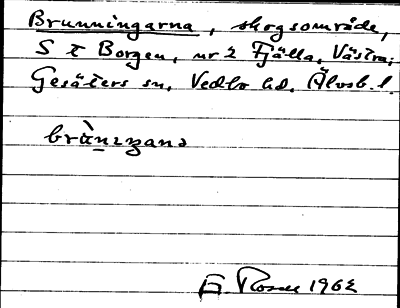 Brunningarna, skogsområde,
S t Borgen, nr 2 Fjälla, Västra,
Gesäters sn, Vedbo hd, Älvsb. l.
brùnıŋana
1962